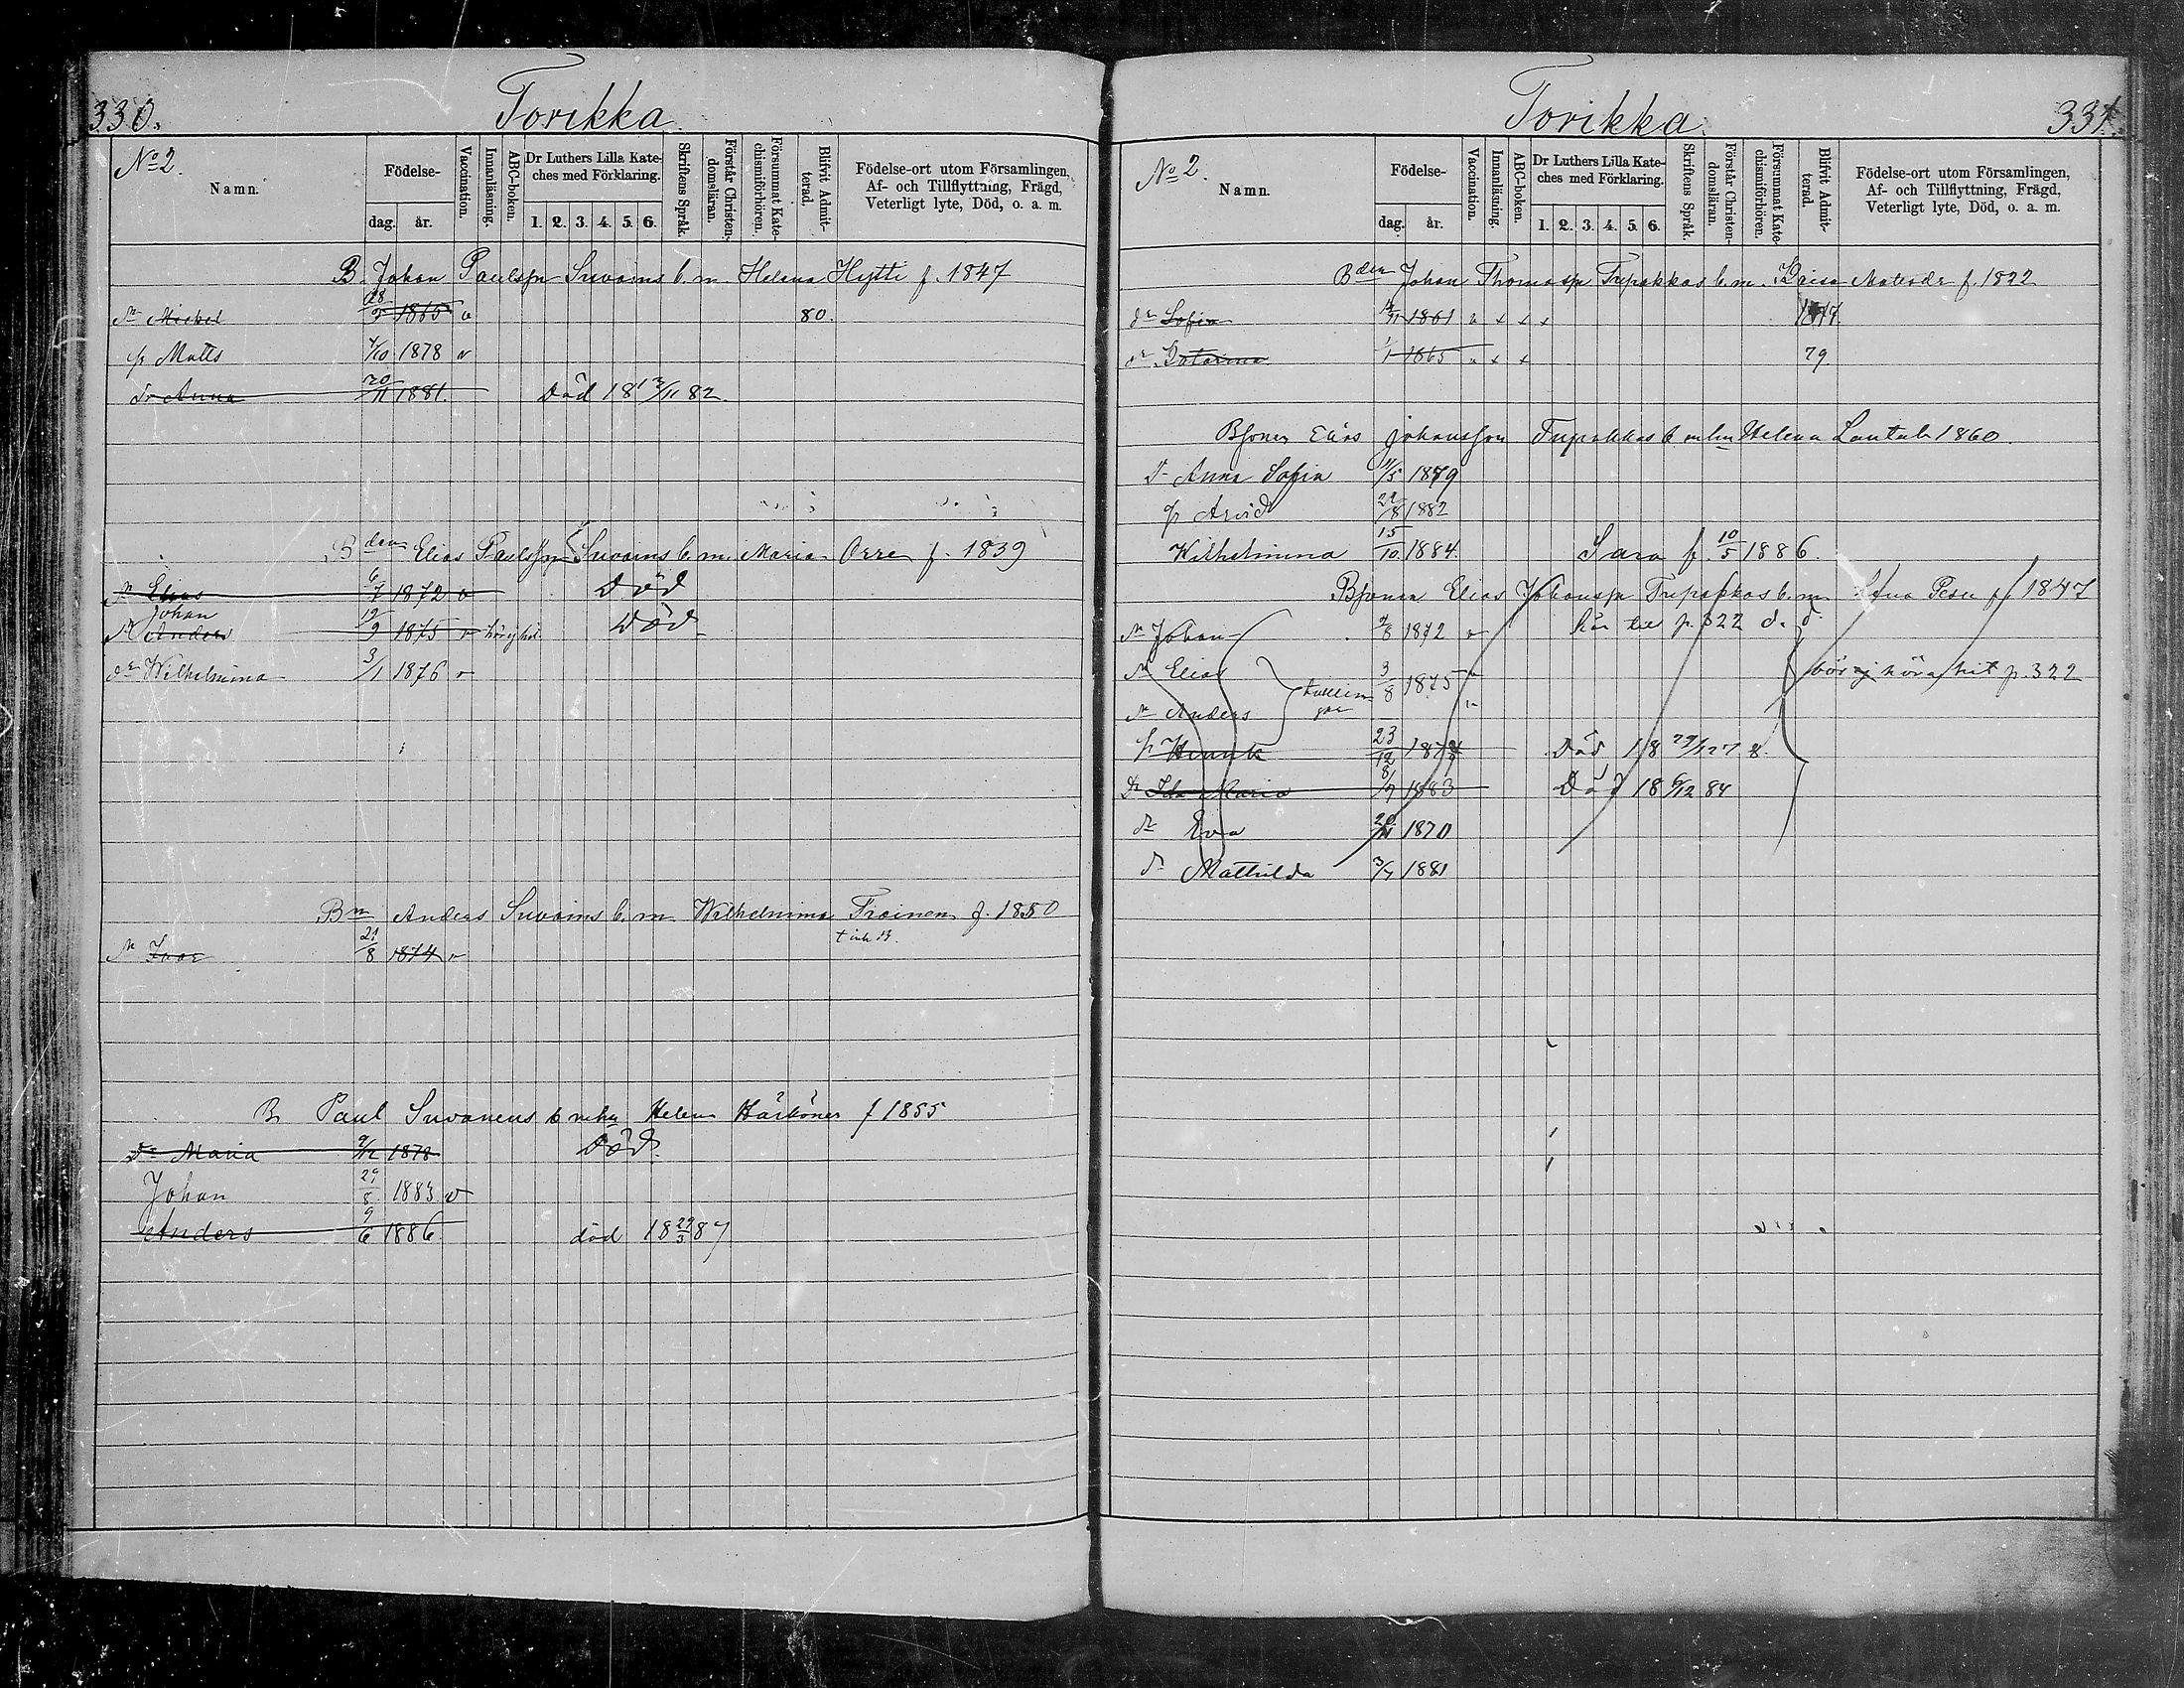 330.
Torikka
No 2.
Namn.
Födelse-
dag.
år.
Vaccination.
Innanläsning.
ABC-boken.
Dr Luthers Lilla Kate-
ches med Förklaring.
1. 2. 3. 4. 5. 6.
Skriftens Språk.
Förstår Christen-
domsläran.
Försummat Kate-
chismiförhören.
Blifvit Admit-
terad.
Födelse-ort utom Församlingen,
Af- och Tillflyttning, Frägd,
Veterligt lyte, Död, o. a. m.
B. Johan Paulsson Suvoins b. m. Helena Hytti f. 1847
Sn Mickel 28/5 1865 v 80.
Sn Matts 4/10 1878 v
Dr Anna 20/11 1881. Död 18 13/11 82.
Bden Elias Paulsson Suvoins b. m. Maria Orre f. 1839
Sn Elias 6/7 1872 v Död
Johan
Sn Anders 19/9 1875 v Död
dr Wilhelmina 3/1 1876 v
Bn Anders Suvoins b. m. Wilhelmina Troinen f. 1850
Sn Ivar 21/8 1874 v
B Paul Suvanens b m hu Helena Härkönen f 1855
Dr Maria 9/12 1878 Död.
Johan 29/8 1883 v
Anders 9/6 1886 död 18 29/3 87
Torikka.
331.
No 2.
Namn.
Födelse-
dag.
år.
Vaccination.
Innanläsning.
ABC-boken.
Dr Luthers Lilla Kate-
ches med Förklaring.
1. 2. 3. 4. 5. 6.
Skriftens Språk.
Förstår Christen-
domsläran.
Försummat Kate-
chismiförhören.
Blifvit Admit-
terad.
Födelse-ort utom Församlingen,
Af- och Tillflyttning, Frägd,
Veterligt lyte, Död, o. a. m.
Bden Johan Thomasson b. m. Kaisa f. 1822
dr Sofia 1861 v x x x
dr Catarina 1/1 1865 v x x 79.
Elias Johansson b m hu Helena Lautala 1860.
D Anna Sofia 4/5 1879
Arvid 29/8 1882
Wilhelmina 15/10 1884. Sara f. 10/5 1886.
Elias Johansson b. m. Stina f 1847
Sn Johan 4/8 1872 v hör till p. 322 d. d.
Sn Elias 3/8 1875 v bör ej höra hit p. 322
Sn Anders tvillin-
gar
Henrik 23/12 187 Död
Dr Ida Maria 8/7 1883 Död 18 6/12 84
dr Eva 20/11 1870
d Mathilda 3/7 1881